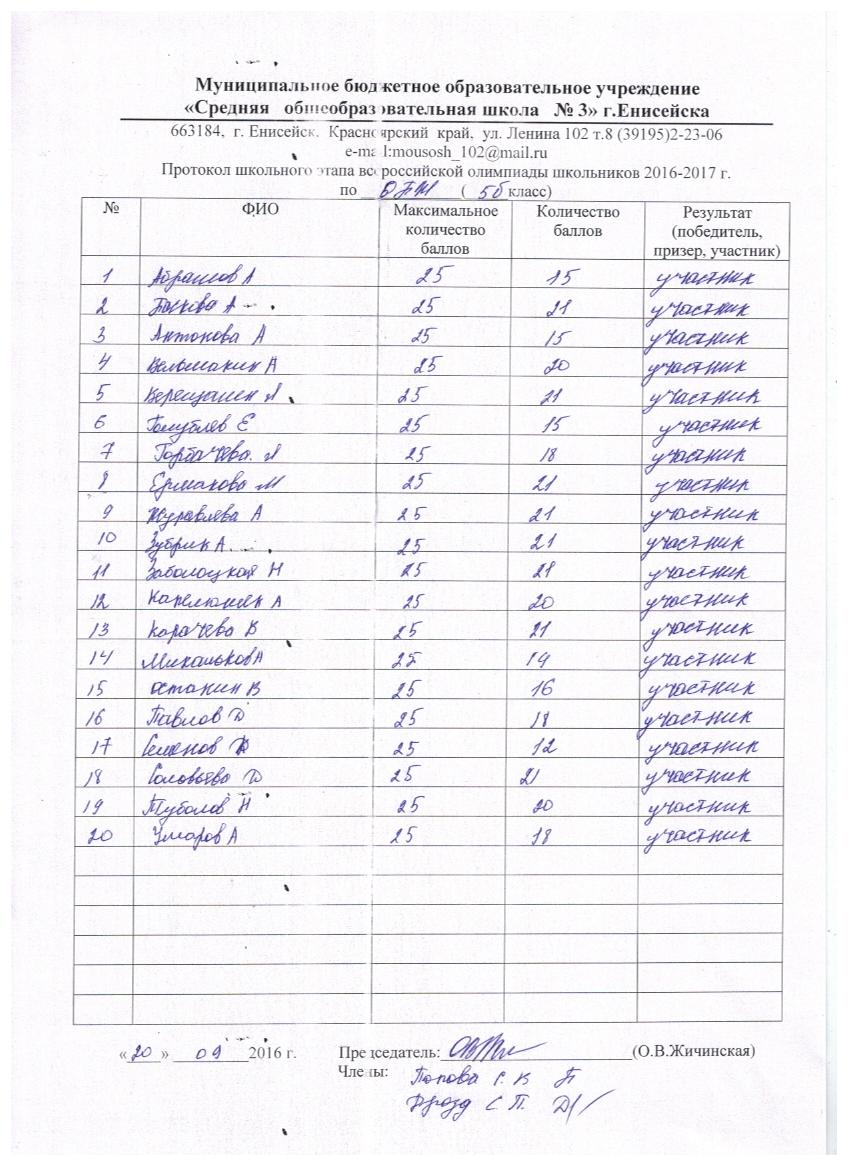 Муниципальное бюджетное образовательное учреждение
«Средняя общеобразовательная школа № 3» г.Енисейска
663184, г. Енисейск. Красноярский край, ул. Ленина 102 т.8 (39195)2-23-06
e-mail:mousosh_102@mail.ru
Протокол школьного этапа всероссийской олимпиады школьников 2016-2017 г.
по ОБЖ (5б класс)
№ ФИО Максимальное количество баллов Количество баллов Результат (победитель, призер, участник)
1 Абрамов А 25 15 участник
2 А 25 21 участник
3 Антонова А 25 15 участник
4 Вельмакин А 25 20 участник
5 25 21 участник
6 Голублев Е 25 15 участник
7 Горбачева. Л 25 18 участник
8 Ермакова М 25 21 участник
9 Журавлева А 25 21 участник
10 Зубрин А. 25 21 участник
11 Заболоцкая Н 25 21 участник
12 А 25 20 участник
13 Карачева В 25 21 участник
14 Михальков А 25 19 участник
15 Останин В 25 16 участник
16 Павлов Д 25 18 участник
17 Семенов 25 12 участник
18 Соловьева Д 25 21 участник
19 Туболов Н 25 20 участник
20 Умаров А 25 18 участник
«20» 09 2016 г. Председатель: (О.В.Жичинская)
Члены: Попова С. В П
Дрозд С. П.